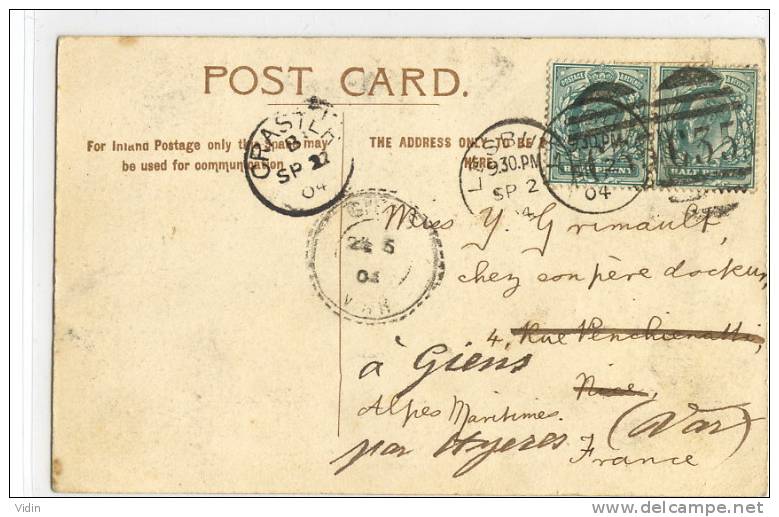 POST CARD.
For Inland Postage only this space may
be used for communication.
THE ADDRESS ONLY TO BE
HERE.
CRASTER
B
SP 22
04
9.30.PM
SP 2
9.30.PM
04
G35
POSTAGE & REVENUE
HALF PENNY
HALF PENNY
24 5
04
VAR
Miss Y. Grimault,
chez son père docteur,
4, Rue
à Giens
Nice,
Alpes Maritimes.
par Hyeres (Var)
France
Vidin
www.delcampe.net